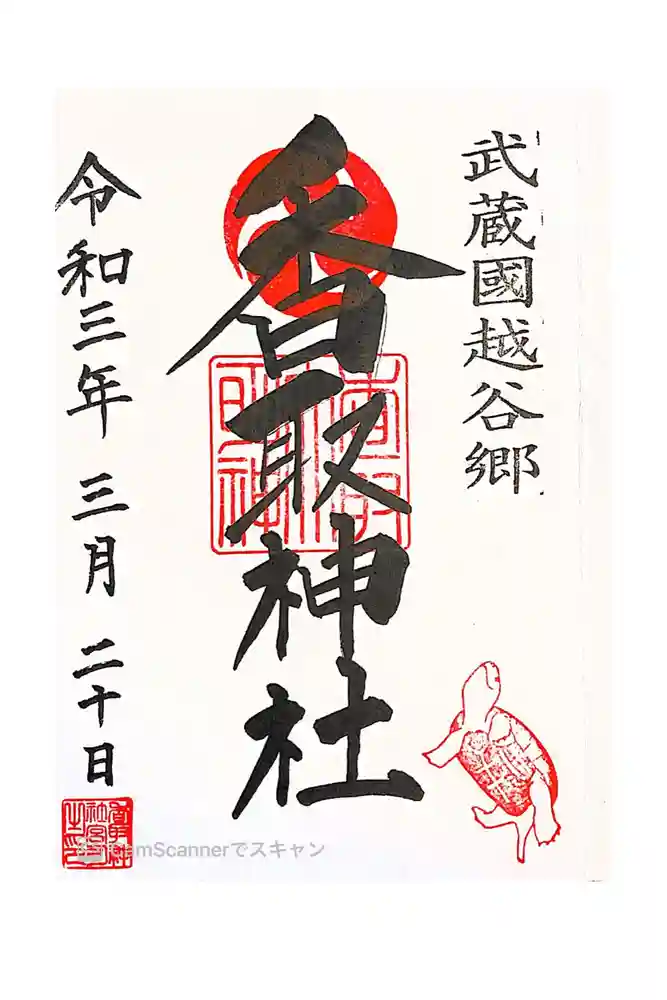 武蔵國越谷郷
香取神社
令和三年 三月 二十日
CamScannerでスキャン